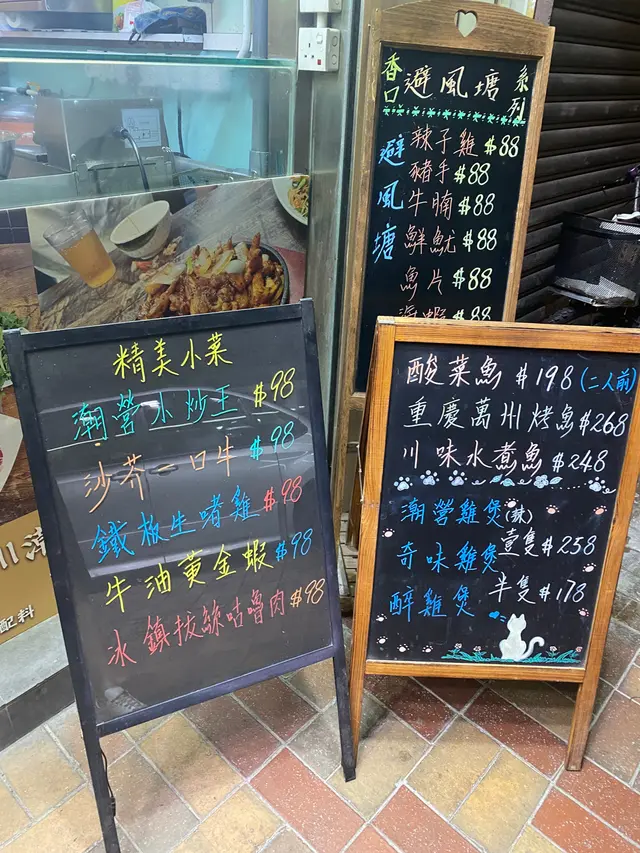 精美小菜
潮營小炒王 $98
沙芥一口牛 $98
鐵板生啫雞 $98
牛油黃金蝦 $98
冰鎮拔絲咕嚕肉 $98
香口避風塘系列
避風塘
辣子雞 $88
豬手 $88
牛腩 $88
鮮魷 $88
魚片 $88
海蝦 $88
酸菜魚 $198 (二人前)
重慶萬州烤魚 $268
川味水煮魚 $248
潮營雞煲(辣)
奇味雞煲 壹隻 $258
醉雞煲 半隻 $178
配料